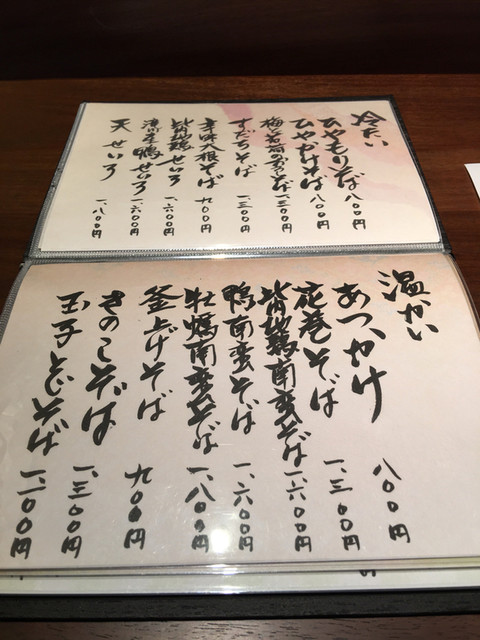 冷たい
ひやもりそば 八〇〇円
ひやかけそば 八〇〇円
梅と茗荷のおろしそば 一、三〇〇円
すだちそば 一、三〇〇円
辛味大根そば 九〇〇円
地鶏せいろ 一、六〇〇円
鴨せいろ 一、六〇〇円
天せいろ 一、八〇〇円
温かい
あつかけ 八〇〇円
花巻そば 一、三〇〇円
地鶏南蛮そば 一、六〇〇円
鴨南蛮そば 一、六〇〇円
牡蠣南蛮そば 一、八〇〇円
釜上げそば 九〇〇円
きのこそば 一、三〇〇円
玉子とじそば 一、二〇〇円